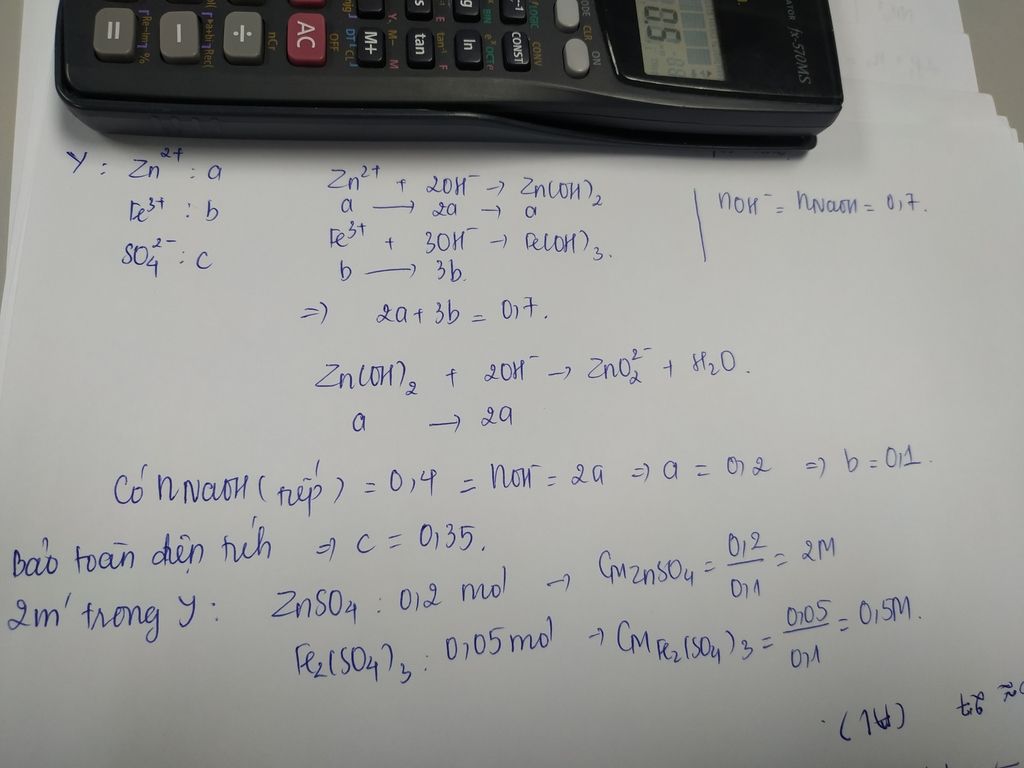 = − ÷ AC M+ tan ln CONST
OFF
ON
fx-570MS
Y : Zn²⁺ : a
Fe³⁺ : b
SO₄²⁻ : c
Zn²⁺ + 2OH⁻ → Zn(OH)₂
a → 2a → a
Fe³⁺ + 3OH⁻ → Fe(OH)₃.
b → 3b.
nOH⁻ = nNaOH = 0,7.
⇒ 2a + 3b = 0,7.
Zn(OH)₂ + 2OH⁻ → ZnO₂²⁻ + H₂O.
a → 2a
Có nNaOH (tiếp) = 0,4 = nOH⁻ = 2a ⇒ a = 0,2 ⇒ b = 0,1.
Bảo toàn điện tích ⇒ c = 0,35.
2m' trong Y : ZnSO₄ : 0,2 mol → CM ZnSO₄ = 0,2/0,1 = 2M
Fe₂(SO₄)₃ : 0,05 mol → CM Fe₂(SO₄)₃ = 0,05/0,1 = 0,5M.
27 (Al).